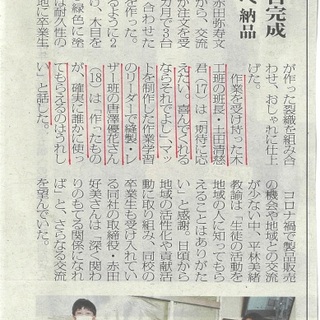 完成
納品
赤田弥寿文
から、交流
が注文を受
カ月で3台
合わせた
るように2
り、木目を
緑色に塗
は耐久性の
地に卒業生
が作った裂織を組み合
わせ、おしゃれに仕上
げた。
作業を受け持った木
工班の班長・土田清慈
君(17)は「期待に応
えたい。喜んでくれる
ならそれでよし」。マッ
トを制作した作業学習
のリーダーで縫製・レ
ザー班の唐澤優花さん
(18)は「作ったもの
が、確実に誰かに使っ
てもらえるのはうれし
い」と話した。
コロナ禍で製品販売
の機会や地域との交流
がない中、平林美緒
教諭は「生徒の活動を
地域の人に知ってもら
えることはありがた
い」と感謝。日頃から
地域の活性化や貢献活
動に取り組み、同校の
卒業生も受け入れてい
る同社の取締役・赤田
好美さんは「深く関わ
りのもてる関係になれ
ば」と、さらなる交流
を望んでいた。